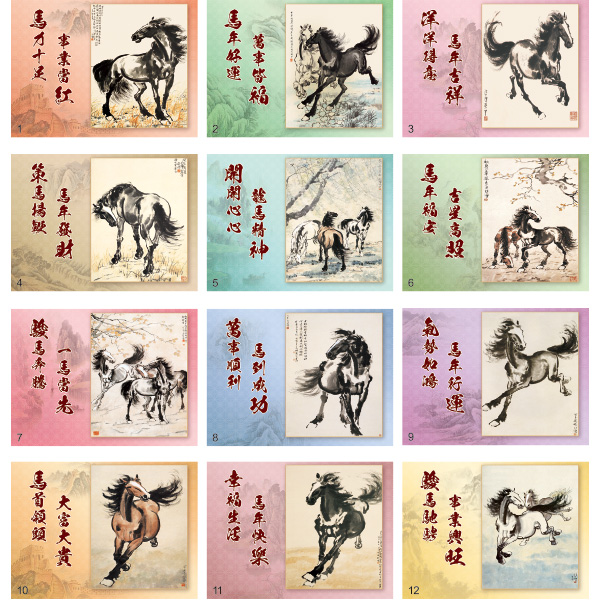 馬力十足
事業當紅
1
馬年好運
萬事皆福
2
洋洋得意
馬年吉祥
3
策馬揚鞭
馬年發財
4
開開心心
龍馬精神
5
馬年福安
吉星高照
6
駿馬奔騰
一馬當先
7
萬事順利
馬到成功
8
氣勢如鴻
馬年行運
9
馬首領頭
大富大貴
10
幸福生活
馬年快樂
11
駿馬馳騁
事業興旺
12